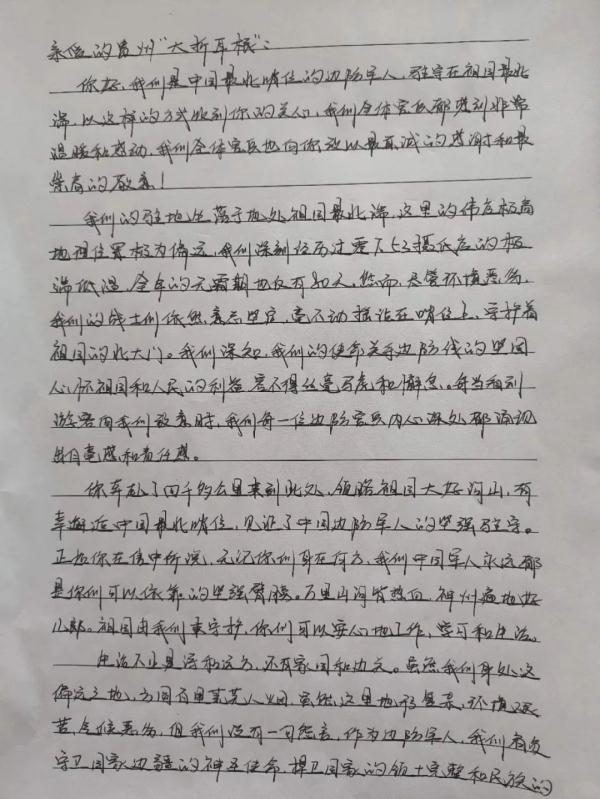 亲爱的贵州“大折耳根”：
你好，我们是中国最北哨位的边防军人，驻守在祖国最北
端，以这样的方式收到你的关心，我们全体官兵都感到非常
温暖和感动，我们全体官兵也向你致以最真诚的感谢和最
崇高的敬意！
我们的驻地坐落于地处祖国最北端，这里的纬度极高
地理位置极为偏远，我们深刻经历过零下53摄氏度的极
端低温，全年的无霜期也仅有80天。然而，尽管环境恶劣，
我们的战士们依然意志坚定，毫不动摇站在哨位上，守护着
祖国的北大门。我们深知，我们的使命关乎边防线的坚固
心怀祖国和人民的利益容不得丝毫马虎和懈怠。每当看到
游客向我们致意时，我们每一位边防官兵内心深处都涌现
出自豪感和责任感。
你车赴了四千多公里来到此处，领略祖国大好河山，有
幸邂逅中国最北哨位，见证了中国边防军人的坚强驻守。
正如你在信中所说，无论你们身在何方，我们中国军人永远都
是你们可以依靠的坚强臂膀。万里山河皆热血，神州遍地好
儿郎。祖国由我们来守护，你们可以安心地工作，学习和生活。
生活不止是诗和远方，还有家国和边关。虽然我们身处这
偏远之地，方圆百里荒芜人烟，虽然这里地形复杂，环境艰
苦，气候恶劣，但我们没有一句怨言，作为边防军人，我们肩负
守卫国家边疆的神圣使命，捍卫国家的领土完整和民族的